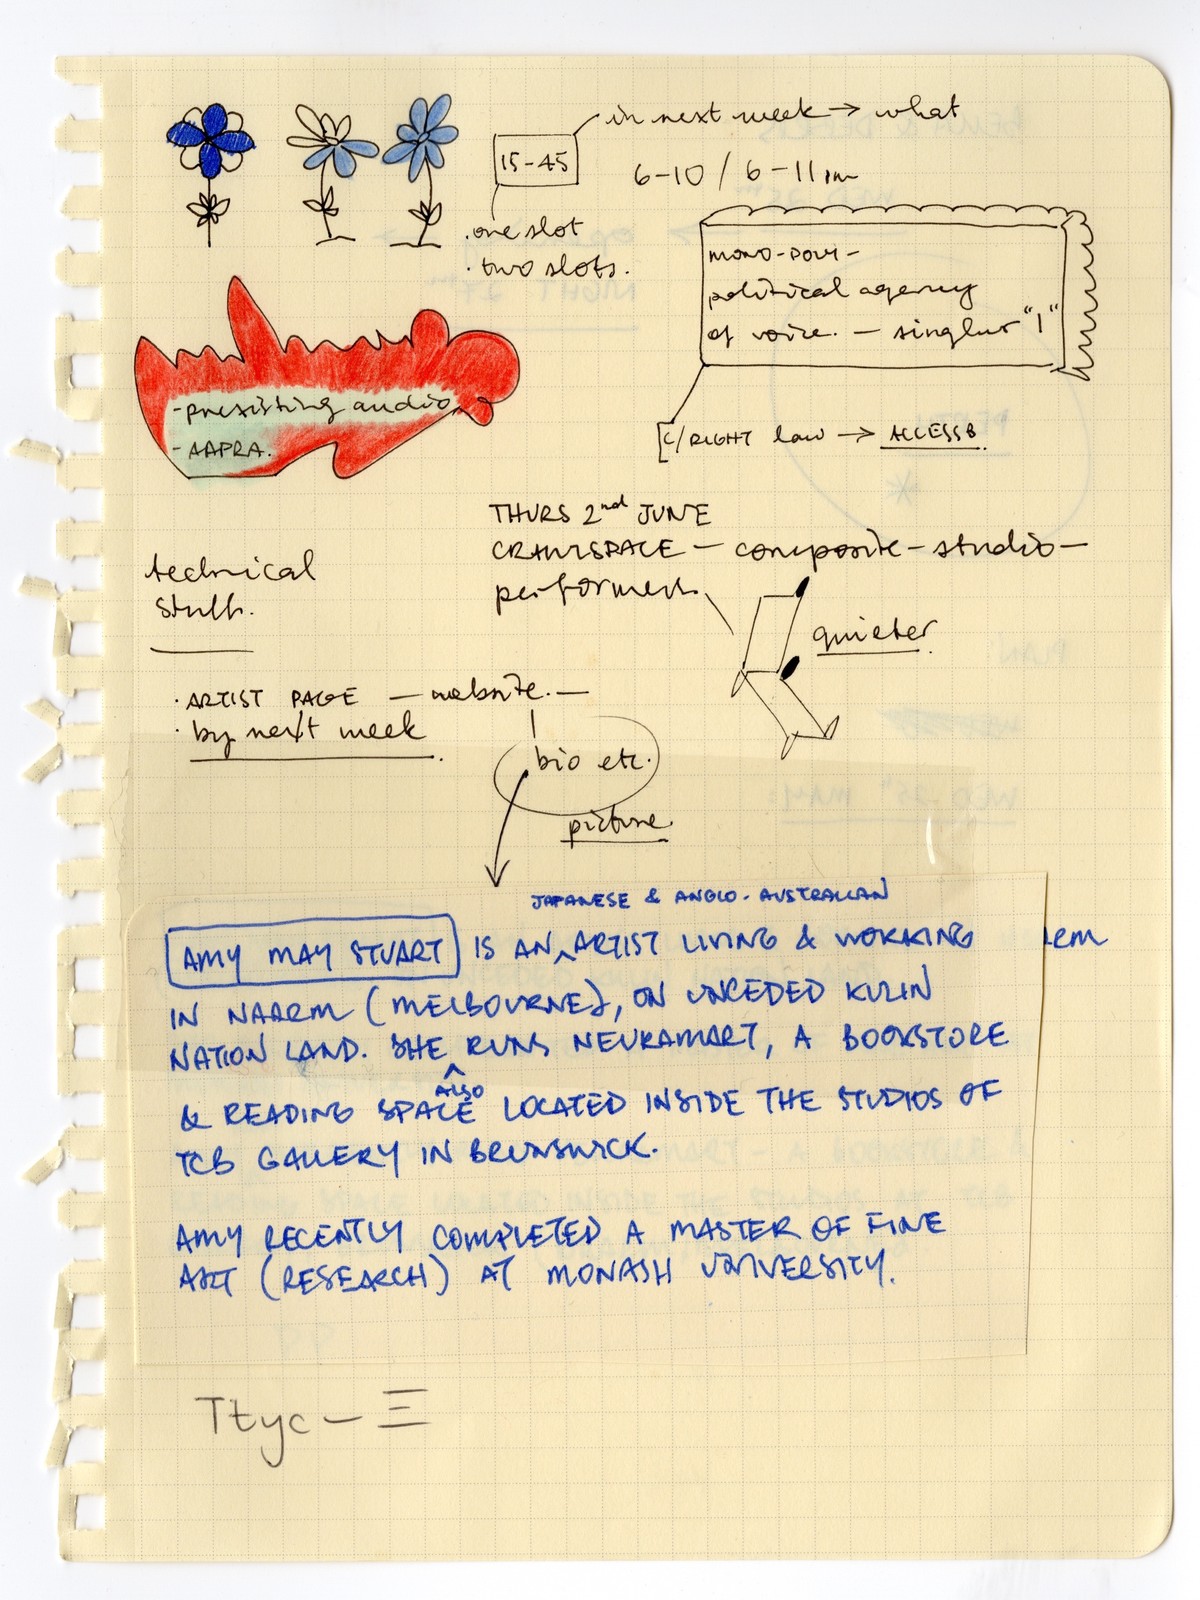 in next week → what
15-45
6-10 / 6-11pm
· one slot
· two slots.
mono-poly-
political agency
of voice. — singlur "I"
- prexisting audio
- AAPRA.
C/RIGHT law → ACCESSB
THURS 2nd JUNE
CRAWLSPACE — composite - studio -
performers.
quieter.
technical
stuff.
· ARTIST PAGE — website. —
· by next week.
bio etc.
picture.
JAPANESE & ANGLO-AUSTRALIAN
AMY MAY STUART IS AN ^ ARTIST LIVING & WORKING
IN NAARM (MELBOURNE), ON UNCEDED KULIN
NATION LAND. SHE ^ RUNS NEURAMART, A BOOKSTORE
ALSO
& READING SPACE LOCATED INSIDE THE STUDIOS OF
TCB GALLERY IN BRUNSWICK.
AMY RECENTLY COMPLETED A MASTER OF FINE
ART (RESEARCH) AT MONASH UNIVERSITY.